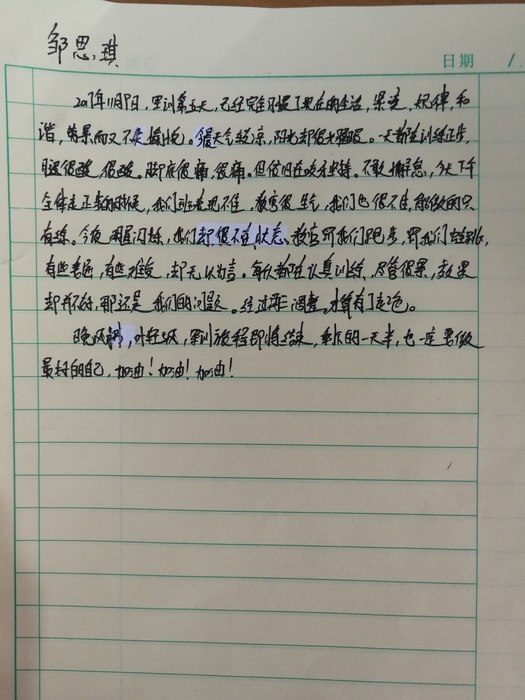 邹思琪
日期
2017年11月9日，军训第五天，已经完全习惯了现在的生活，早起，规律，和
谐，劳累而又不失。天气较凉，阳光却很耀眼。一天都在训练正步，
腿很酸，很酸。脚底很痛，很痛。但依旧在咬牙坚持。不敢懈怠，今天下午
全体走正步的时候，我们班表现不佳，教官很生气，我们也很不佳，能做的只
有练。今夜，我们却很不在状态。教官罚我们跑步，罚我们
有些委屈，有些难受，却无以为言。每个人都在认真训练，尽管很累，效果
却并不好，那还是我们的问题。经过再三调整，才算有了起色。
晚风，军训旅程即将结束，剩下的一天半，也一定要做
最好的自己，加油！加油！加油！